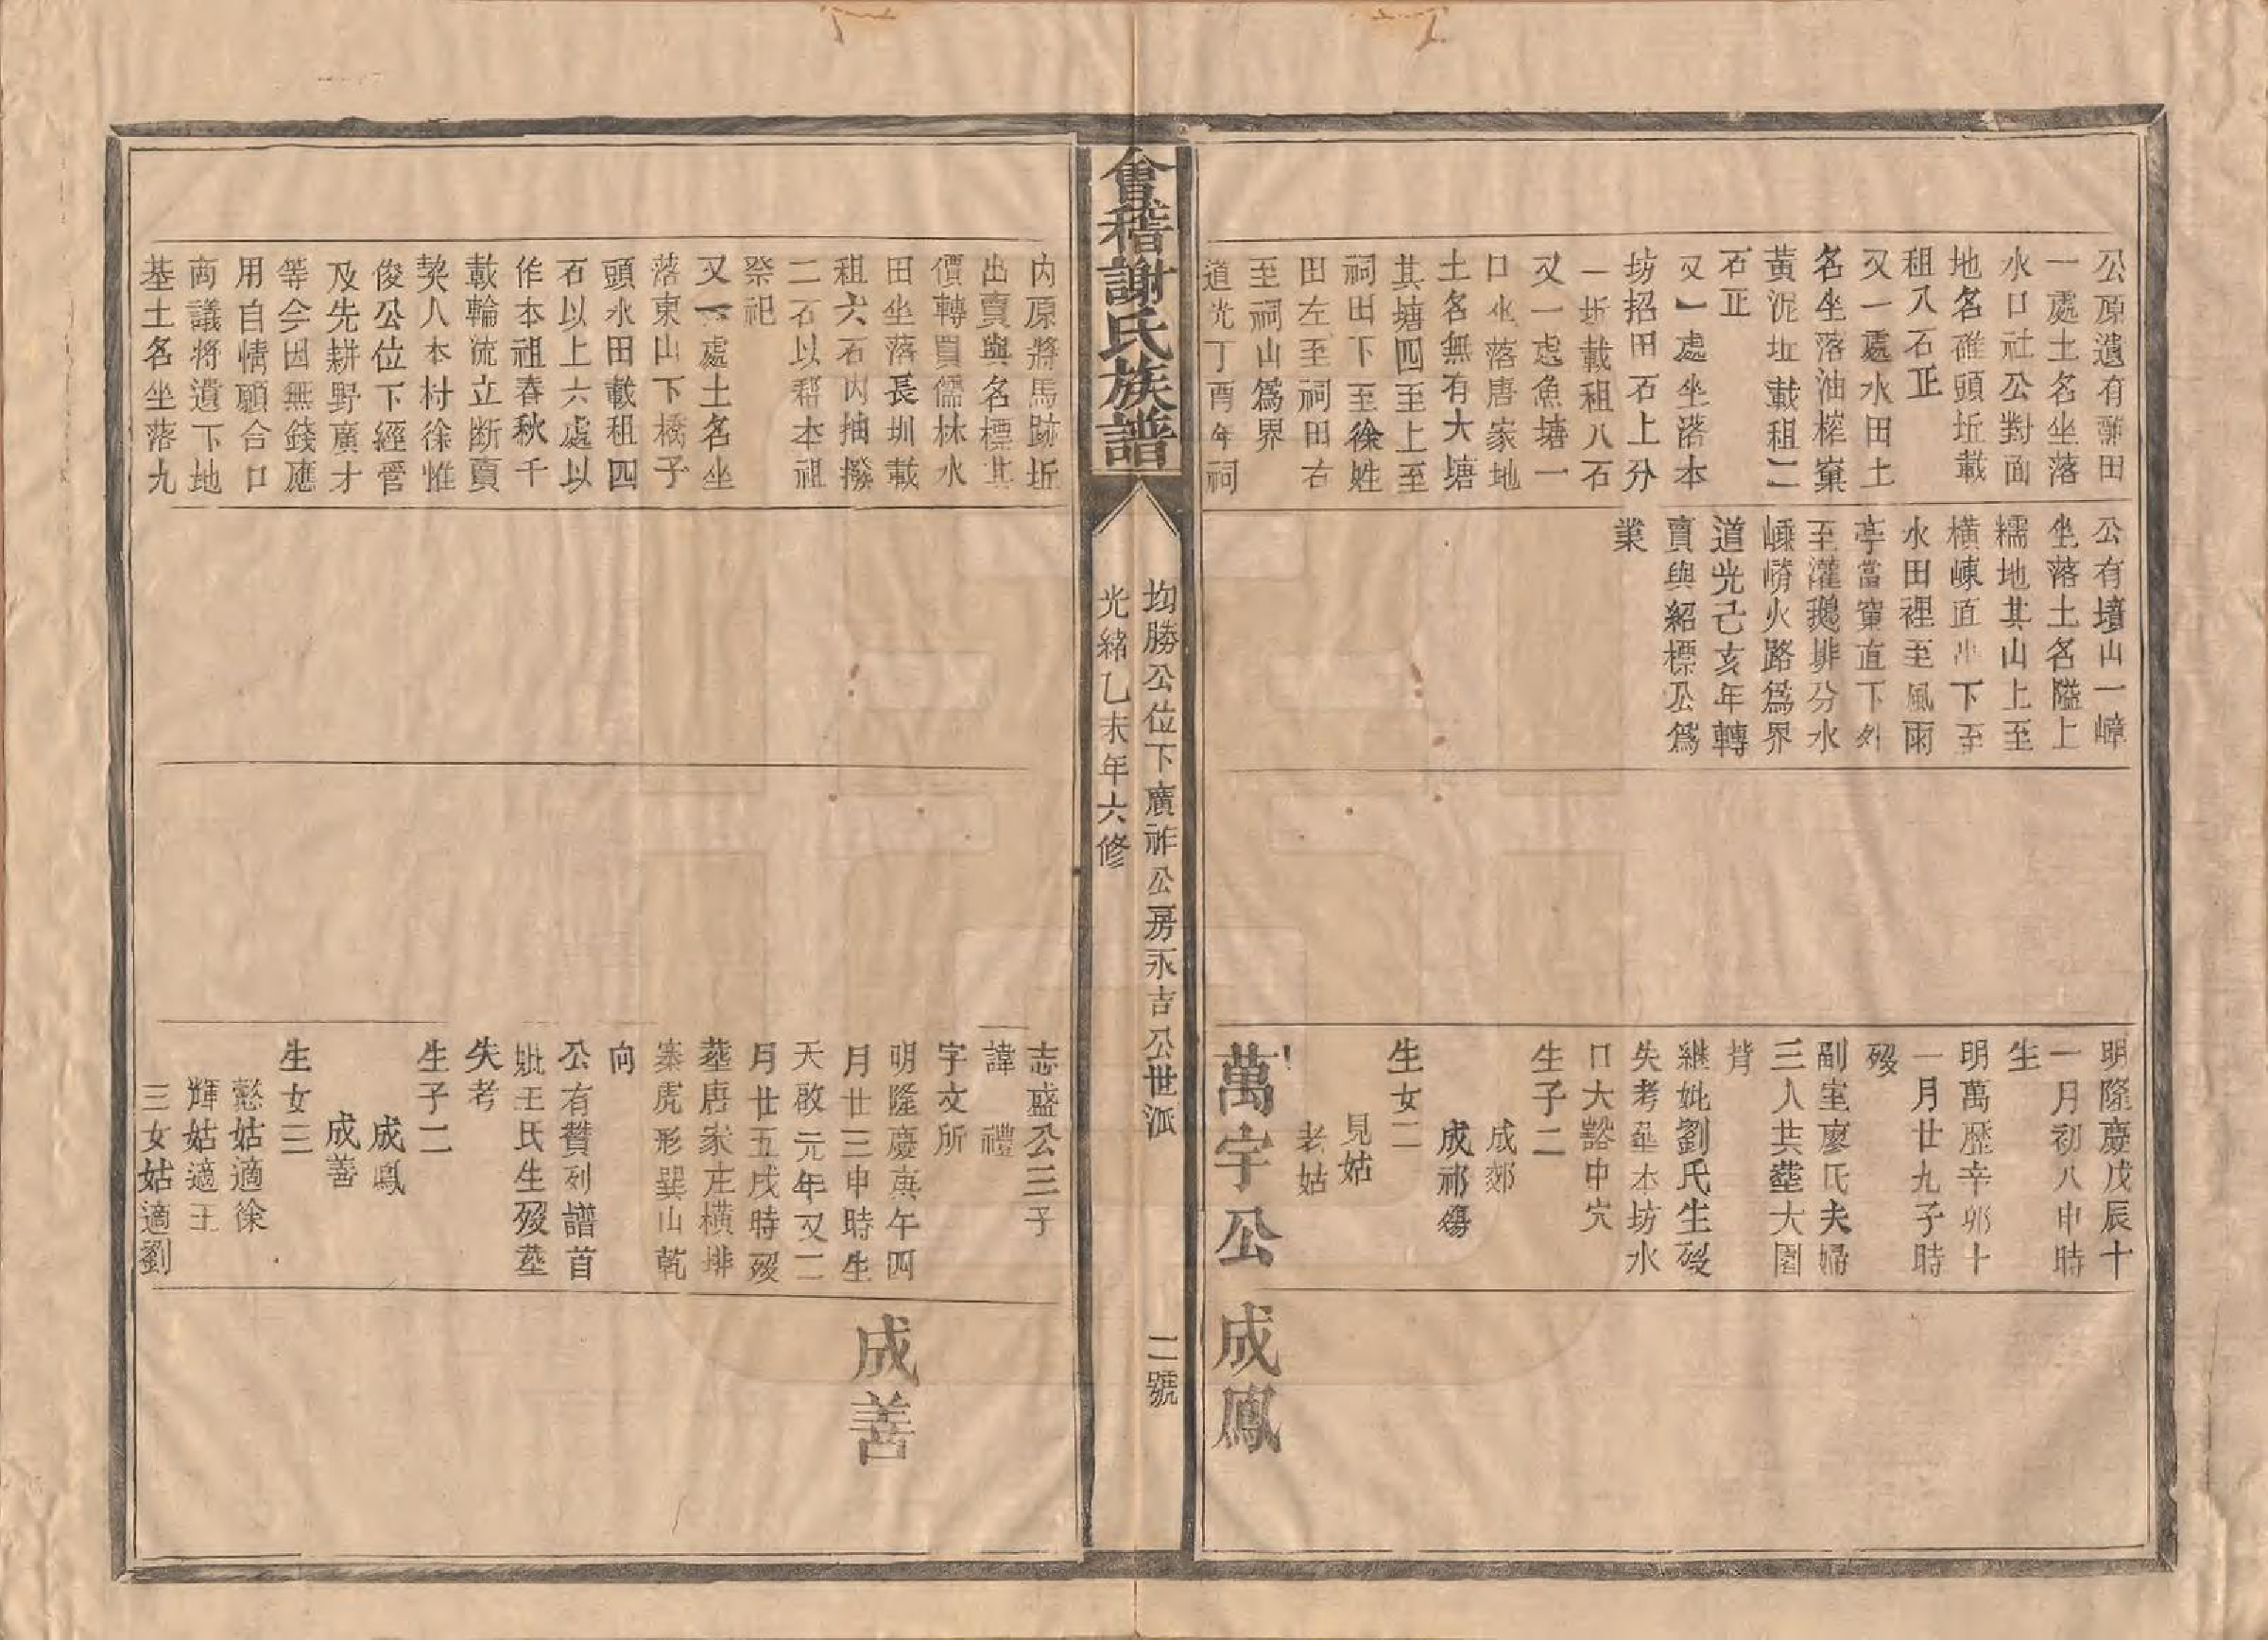 公原遺有蒸田
一處土名坐落
水口社公對面
地名碓頭坵載
租八石正
又一處水田土
名坐落油榨窠
黃泥坵載租二
石正
又一處坐落本
坊招田石上分
一坵載租八石
又一處魚塘一
口坐落唐家地
土名無有大塘
其塘四至上至
祠田下至徐姓
田左至祠田右
至祠山爲界
道光丁酉年祠
公有墳山一嶂
坐落土名隘上
糯地其山上至
橫崠直出下至
水田裡至風雨
亭當窠直下外
至灌鵝排分水
嵊嵴火路爲界
道光己亥年轉
賣與紹標公爲
業
明隆慶戊辰十
一月初八申時
生
明萬歷辛卯十
一月廿九子時
歿
副室廖氏夫婦
三人共塟大園
背
繼妣劉氏生歿
失考塟本坊水
口大谿中穴
生子二
成郊
成祁殤
生女二
見姑
老姑
萬宇公
成鳳
會稽謝氏族譜
均勝公位下廣祚公房永吉公世派
二號
光緒乙未年六修
內原將馬跡坵
出賣與名標其
價轉買儒林水
田坐落長圳載
租六石內抽撥
二石以帮本祖
祭祀
又一處土名坐
落東山下橋子
頭水田載租四
石以上六處以
作本祖春秋千
載輪流立断賣
契人本村徐惟
俊公位下經管
及先耕野廣才
等今因無錢應
用自情願合口
商議將遺下地
基土名坐落九
志盛公三子
諱禮
字文所
明隆慶庚午四
月廿三申時生
天啟元年又二
月廿五戌時歿
塟唐家庄橫排
寨虎形巽山乾
向
公有贊列譜首
妣王氏生歿塟
失考
生子二
成鳳
成善
生女三
憗姑適徐
輝姑適王
三女姑適劉
成善